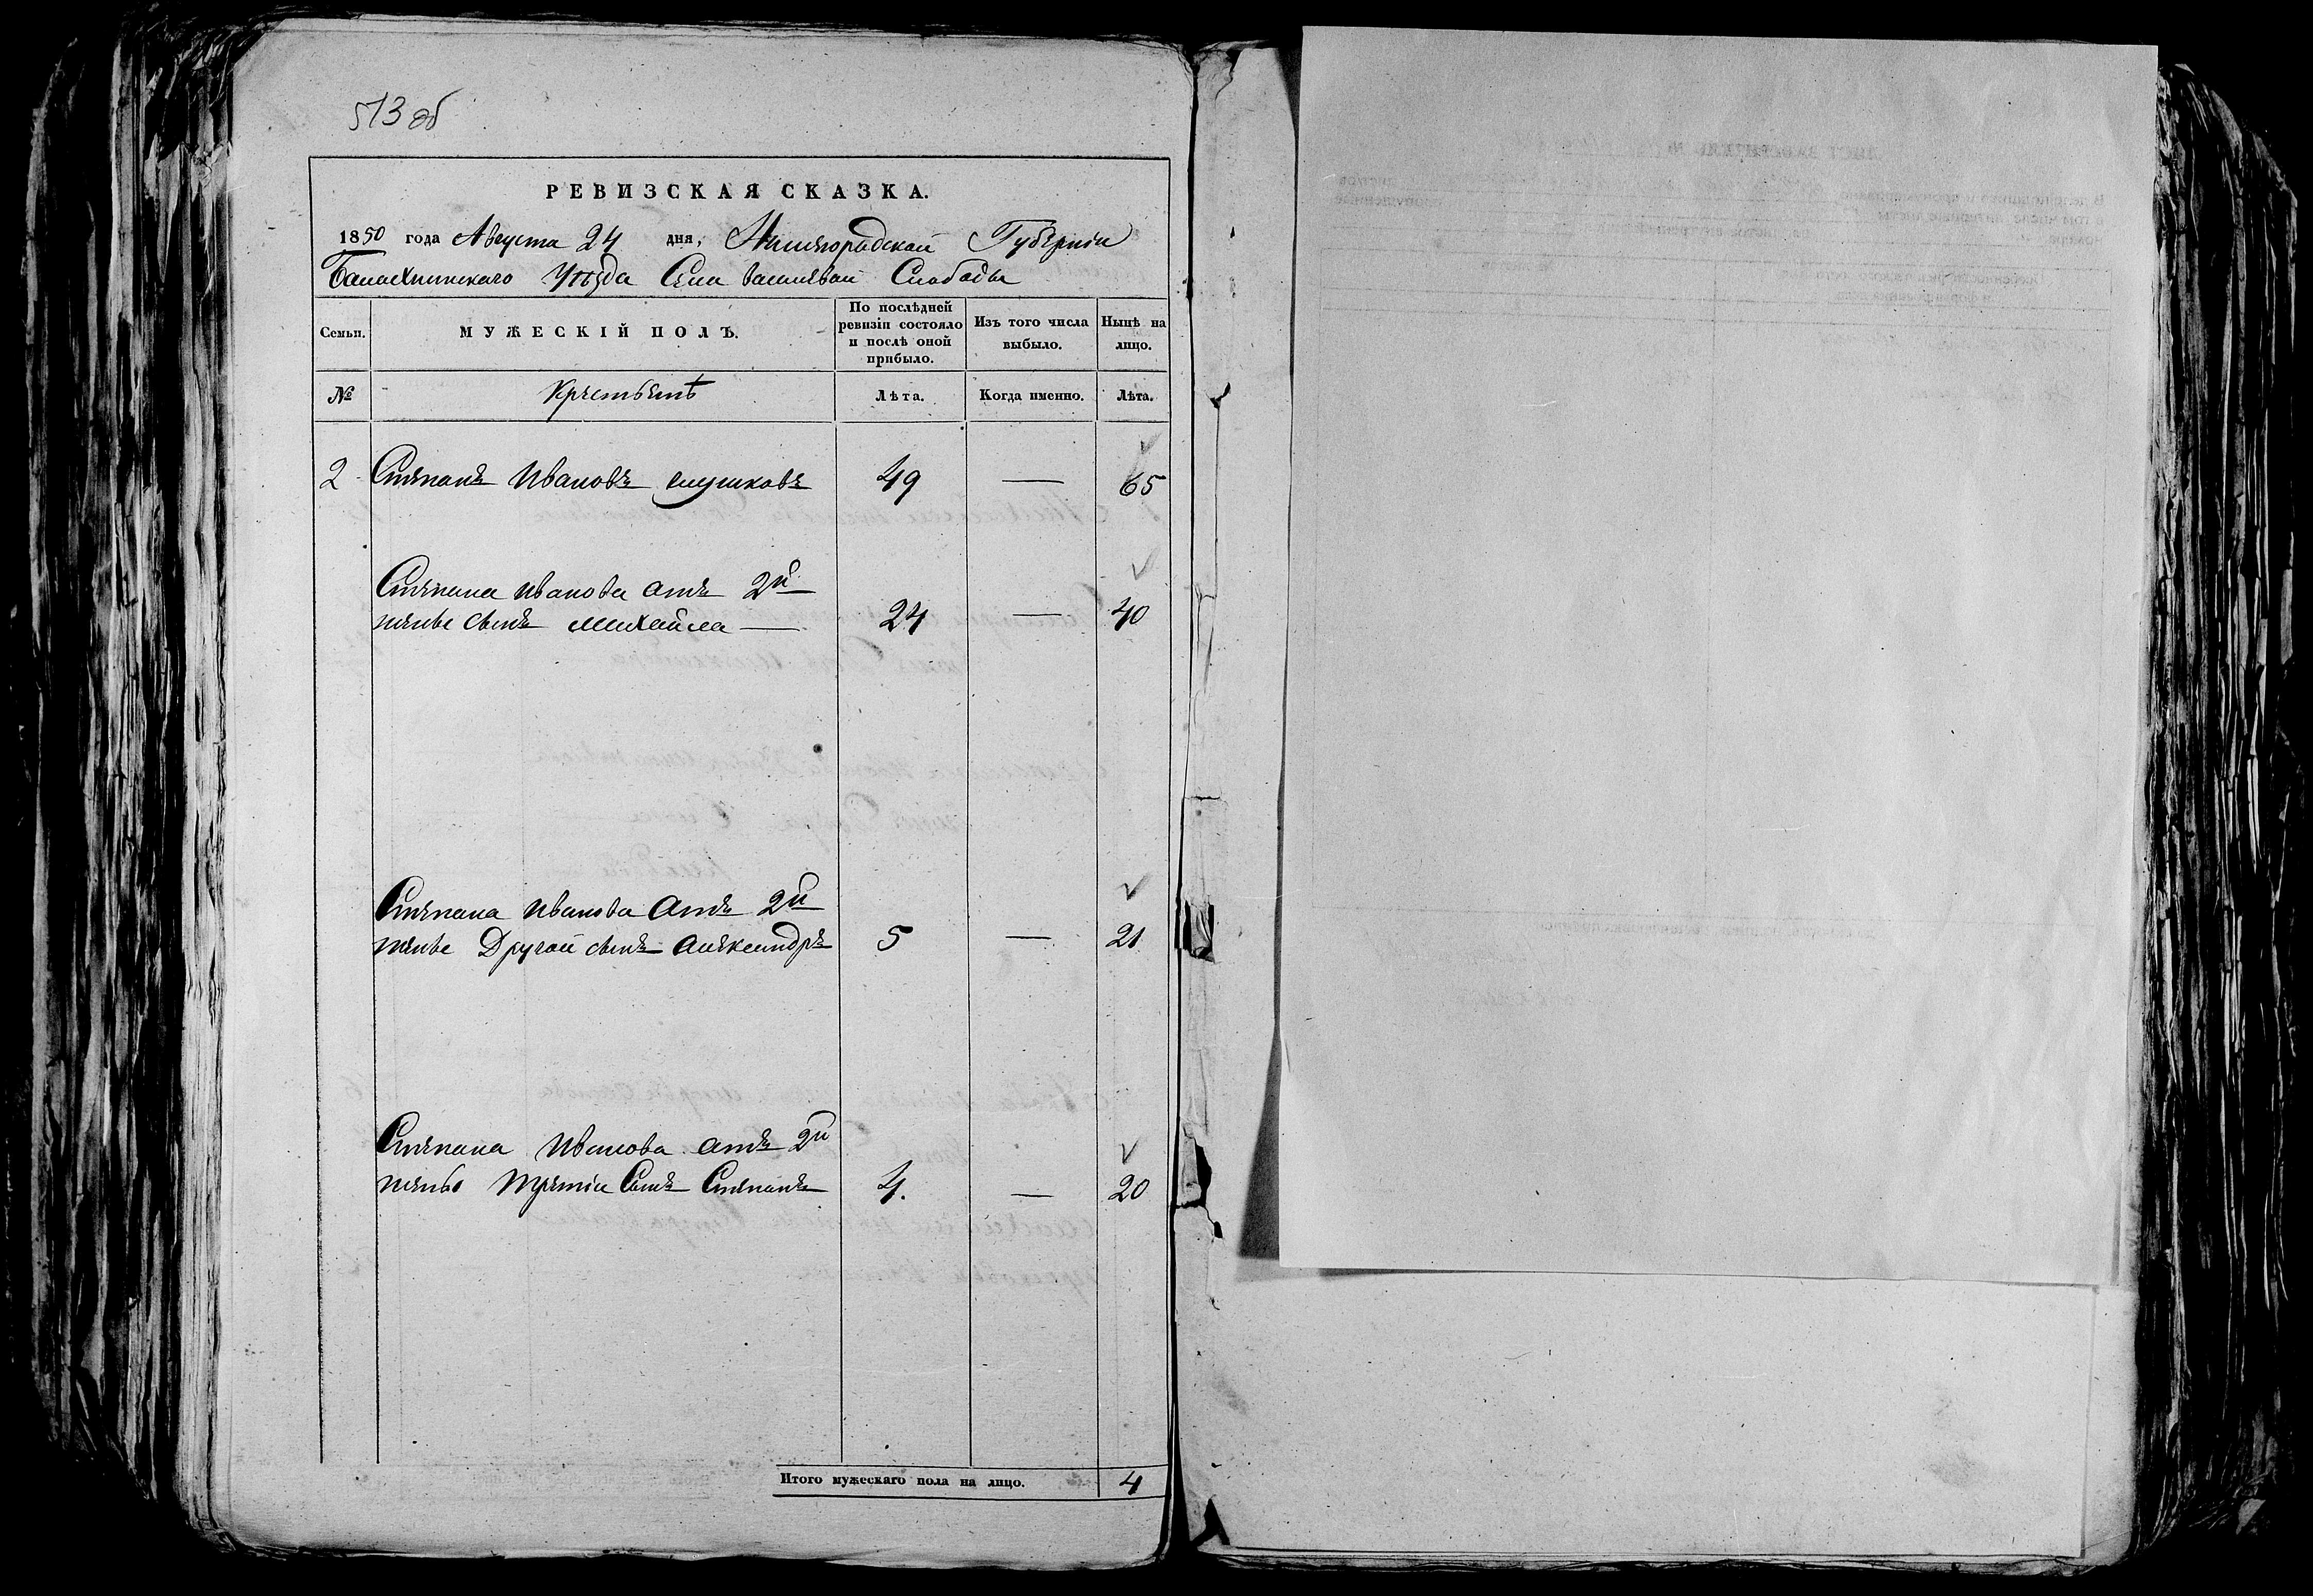 513 об
РЕВИЗСКАЯ СКАЗКА.
1850 года Августа 24 дня, Нижегородской Губерніи
Балахнинскаго Уѣзда Села василевай Слабады
Семьи. МУЖЕСКІЙ ПОЛЪ. По послѣдней ревизіи состояло и послѣ оной прибыло. Изъ того числа выбыло. Нынѣ на лицо.
№ Крестьянѣ Лѣта. Когда именно. Лѣта.
2 Степанъ Ивановъ 49 — 65
Степана Иванова атъ 2й
жены сынъ михайла — 24 — 40
Степана Иванова атъ 2й
жены Другой сынъ Александръ 5 — 21
Степана Иванова атъ 2й
жены третіи Сынъ Степанъ 4. — 20
Итого мужескаго пола на лицо. 4